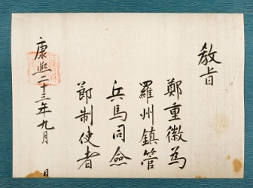 敎旨
鄭重徽爲
羅州鎭管
兵馬同僉
節制使者
康熙二十三年九月 日